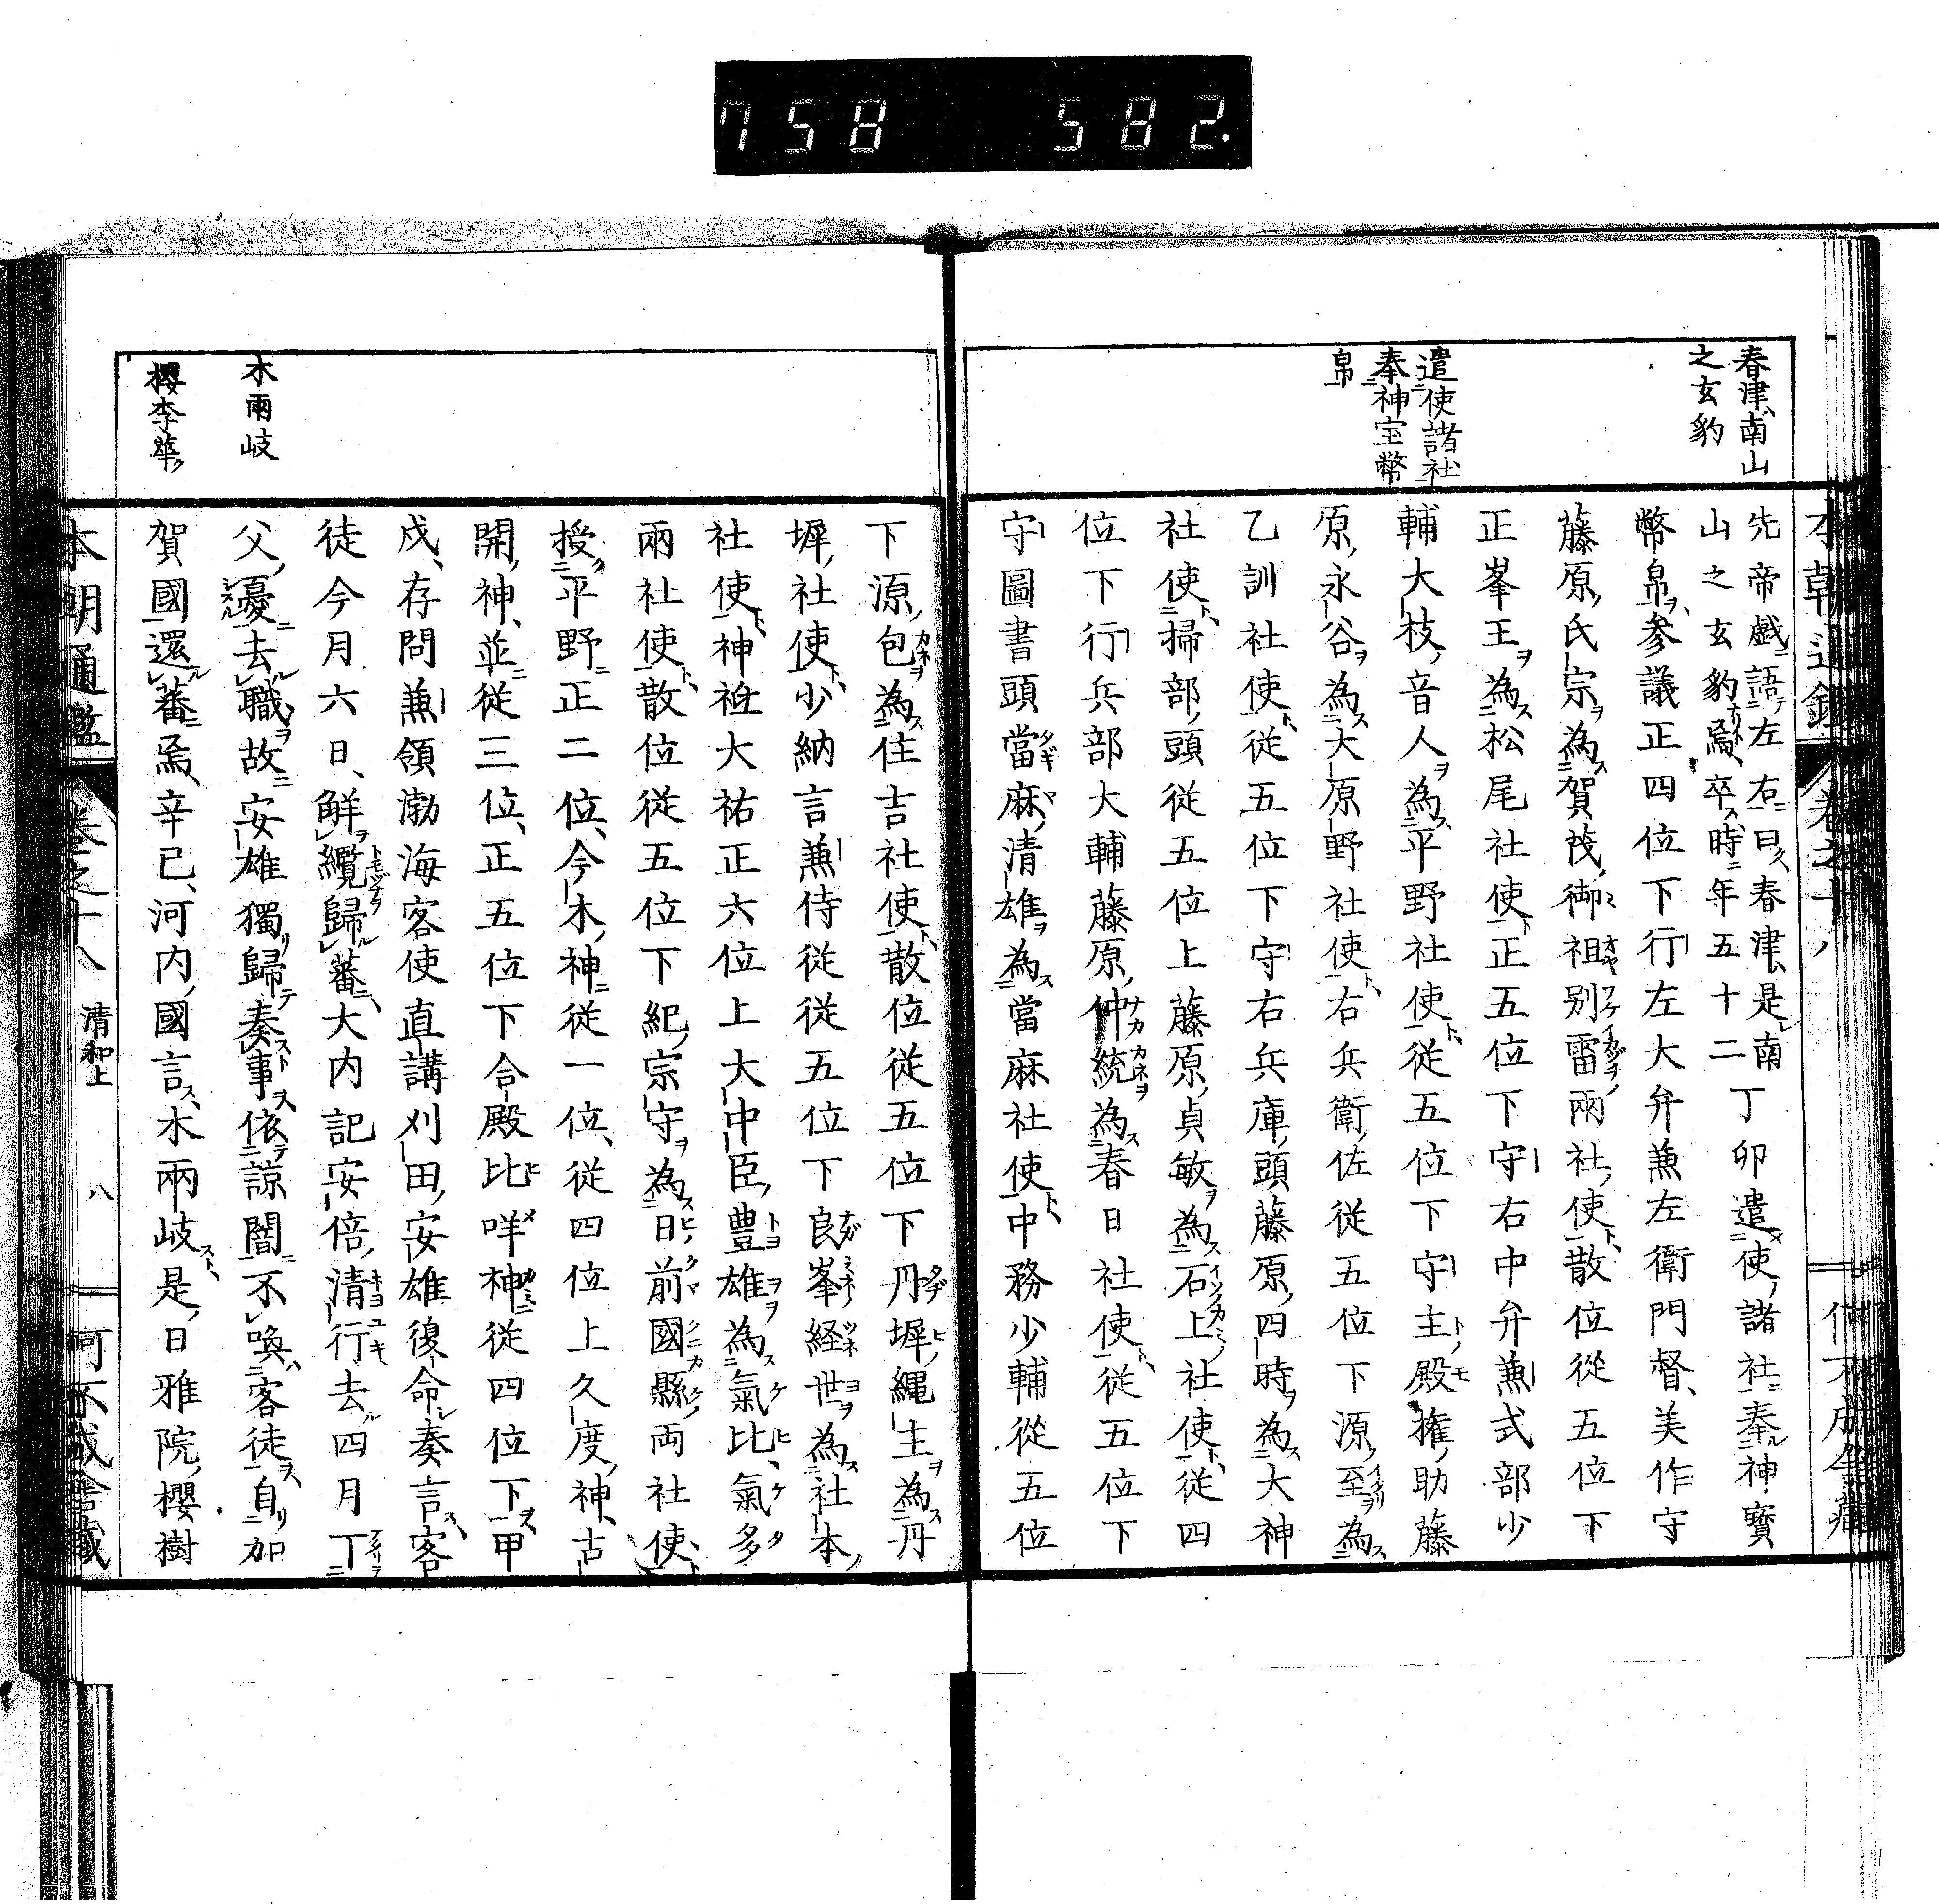 758 582.
本朝通鑑 卷之十八
春津南山
之玄豹
遣使諸社
奉神宝幣
帛
先帝戲語左右曰春津是南
山之玄豹焉卒時年五十二
丁卯遣使諸社奉神寶
幣帛參議正四位下行左大弁兼左衛門督美作守
藤原氏宗為賀茂御祖別雷兩社使散位從五位下
正峯王為松尾社使正五位下守右中弁兼式部少
輔大枝音人為平野社使從五位下守主殿権助藤
原永谷為大原野社使右兵衛佐從五位下源至為
乙訓社使從五位下守右兵庫頭藤原四時為大神
社使掃部頭從五位上藤原貞敏為石上社使從四
位下行兵部大輔藤原仲統為春日社使從五位下
守圖書頭當麻清雄為當麻社使中務少輔從五位
下源包為住吉社使散位從五位下丹墀縄主為丹
墀社使少納言兼侍從從五位下良峯経世為社本
社使神祇大祐正六位上大中臣豊雄為氣比氣多
兩社使散位從五位下紀宗守為日前國縣両社使
授平野正二位今木神從一位從四位上久度神古
開神並從三位正五位下合殿比咩神從四位下甲
戌存問兼領渤海客使直講刈田安雄復命奏言客
徒今月六日解纜歸蕃大内記安倍清行去四月丁
父憂去職故安雄獨歸奏事依諒闇不喚客徒自加
賀國還蕃焉辛已河内國言木兩岐是日雅院櫻樹
木兩岐
櫻李華
本朝通鑑 卷之十八 清和上 八